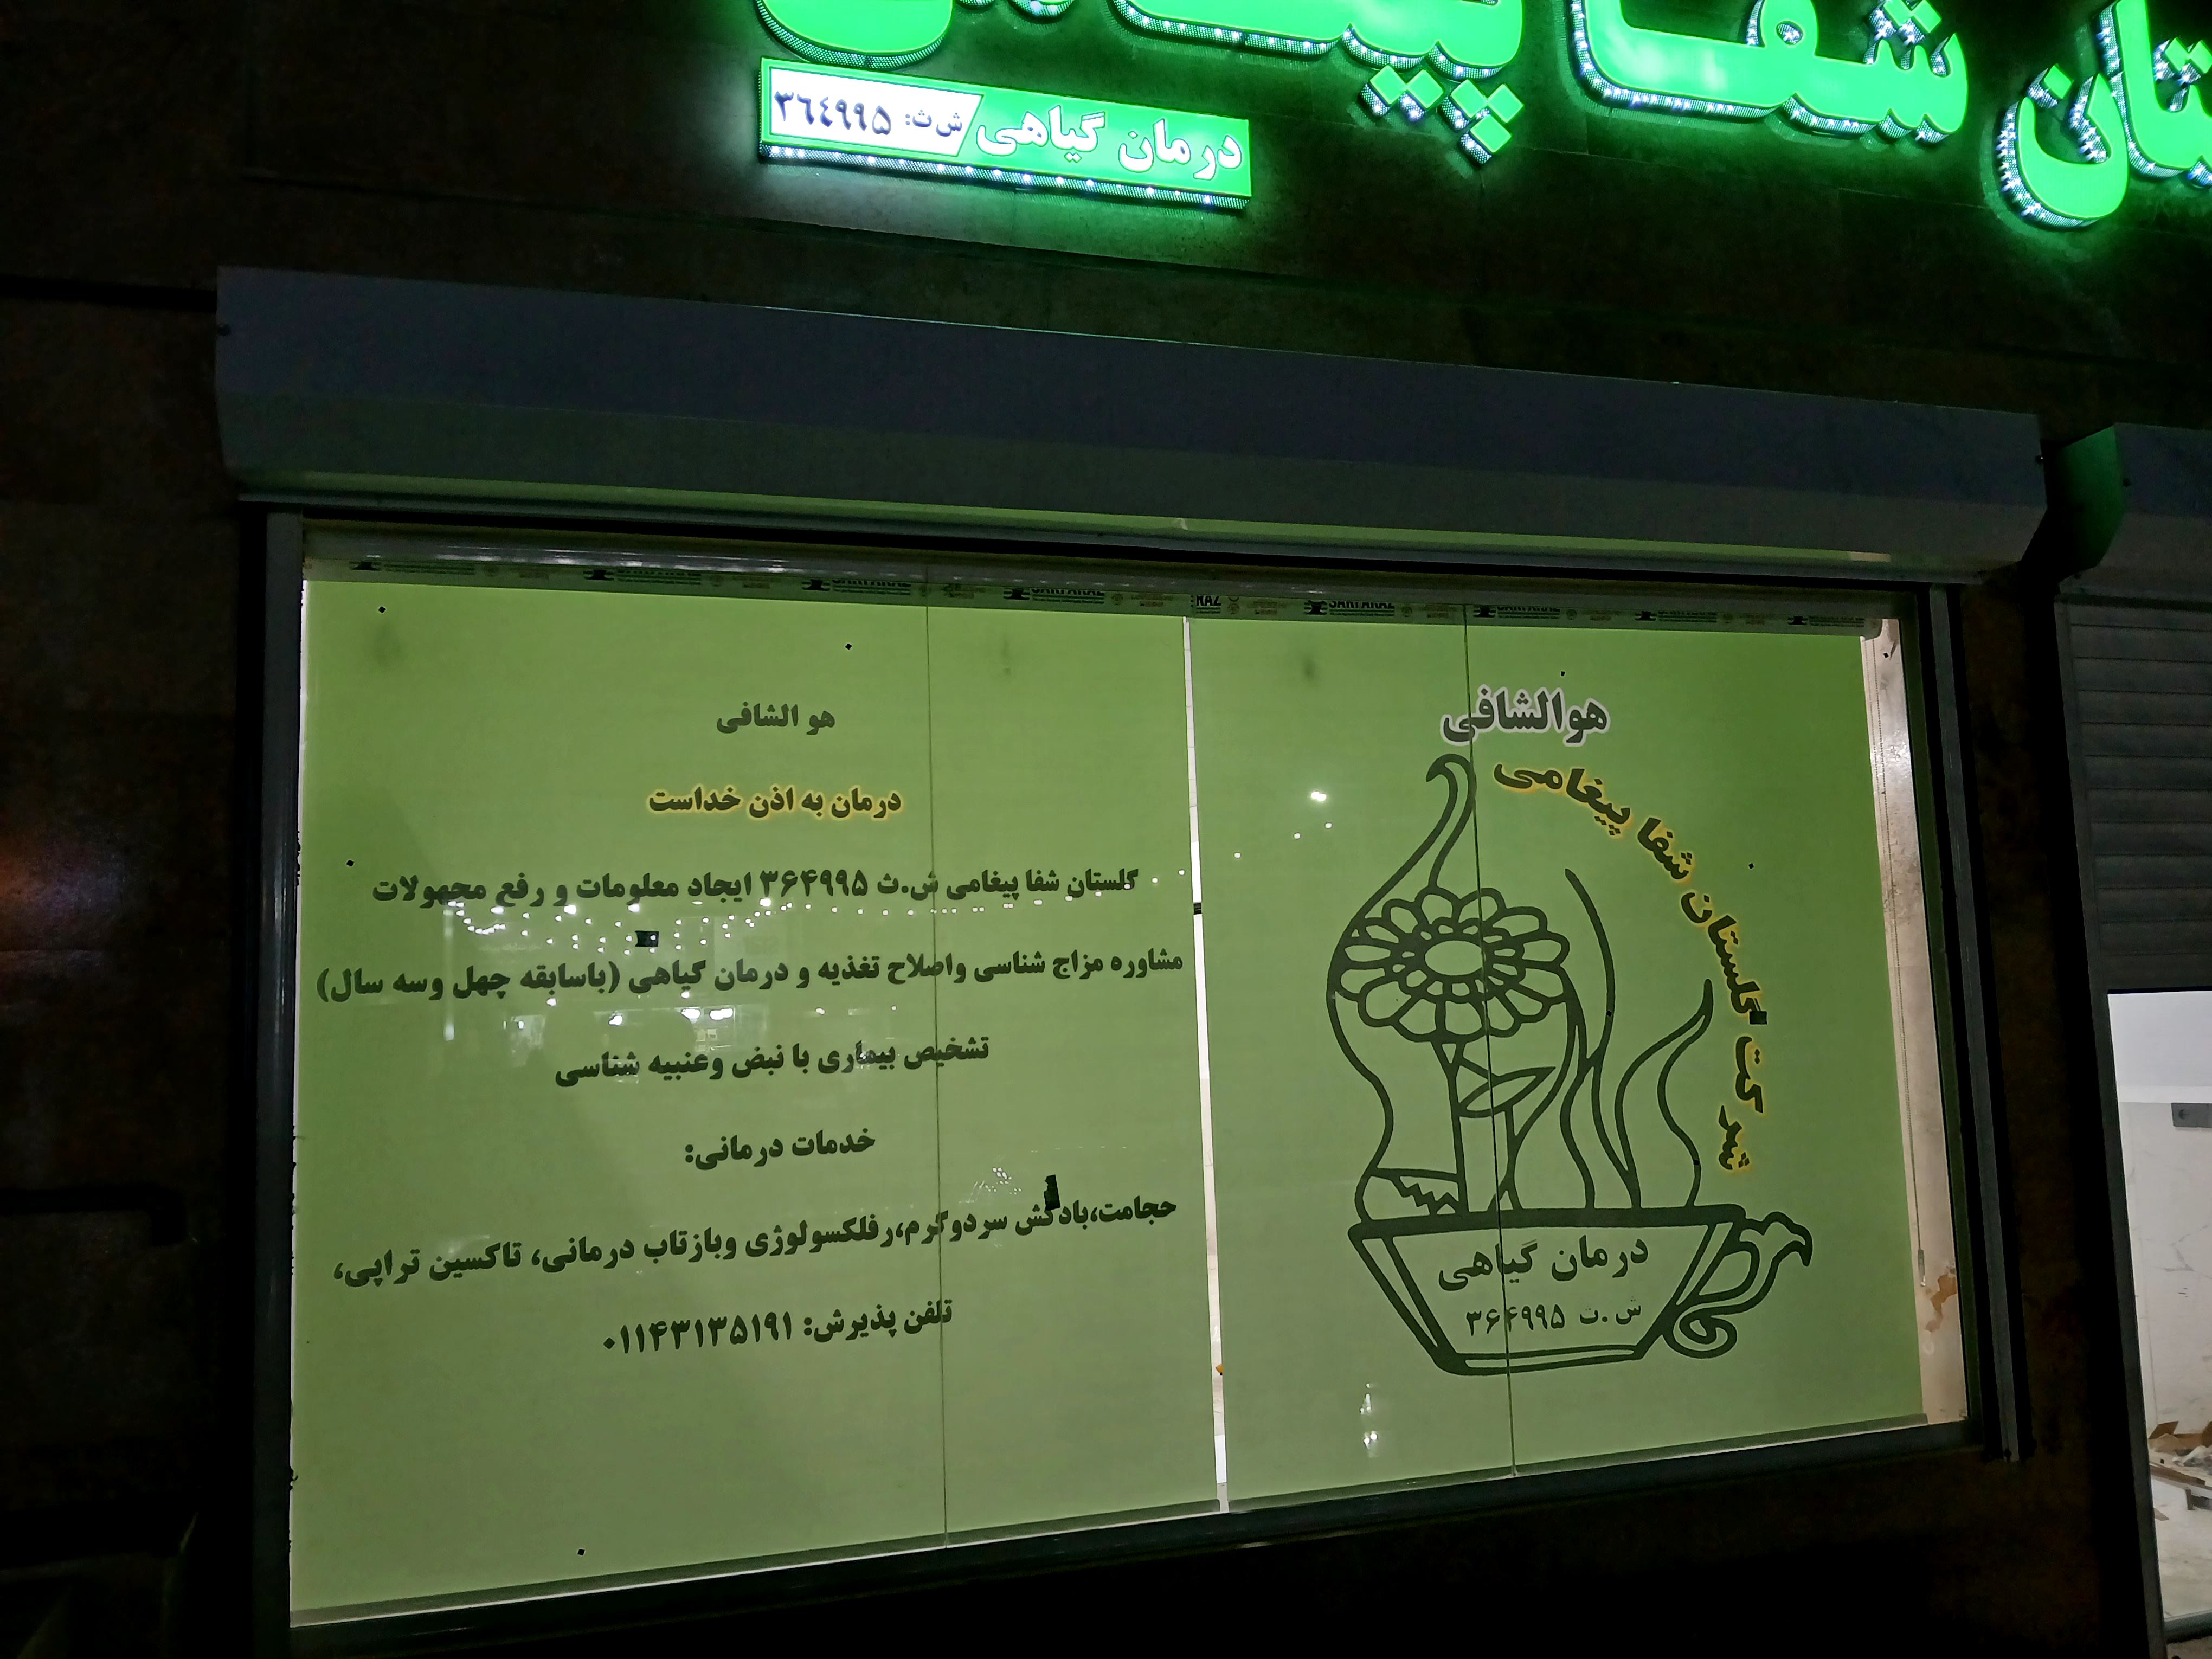 تان شفا پیغامی
درمان گیاهی ش ث: ۳٦٤۹۹۵
هوالشافی
شرکت گلستان شفا پیغامی
درمان گیاهی
ش.ت ۳۶۴۹۹۵
هو الشافی
درمان به اذن خداست
گلستان شفا پیغامی ش.ث ۳۶۴۹۹۵ ایجاد معلومات و رفع مجهولات
مشاوره مزاج شناسی واصلاح تغذیه و درمان گیاهی (باسابقه چهل وسه سال)
تشخیص بیماری با نبض وعنبیه شناسی
خدمات درمانی:
حجامت،بادکش سردوگرم،رفلکسولوژی وبازتاب درمانی، تاکسین تراپی،
تلفن پذیرش: ۰۱۱۴۳۱۳۵۱۹۱